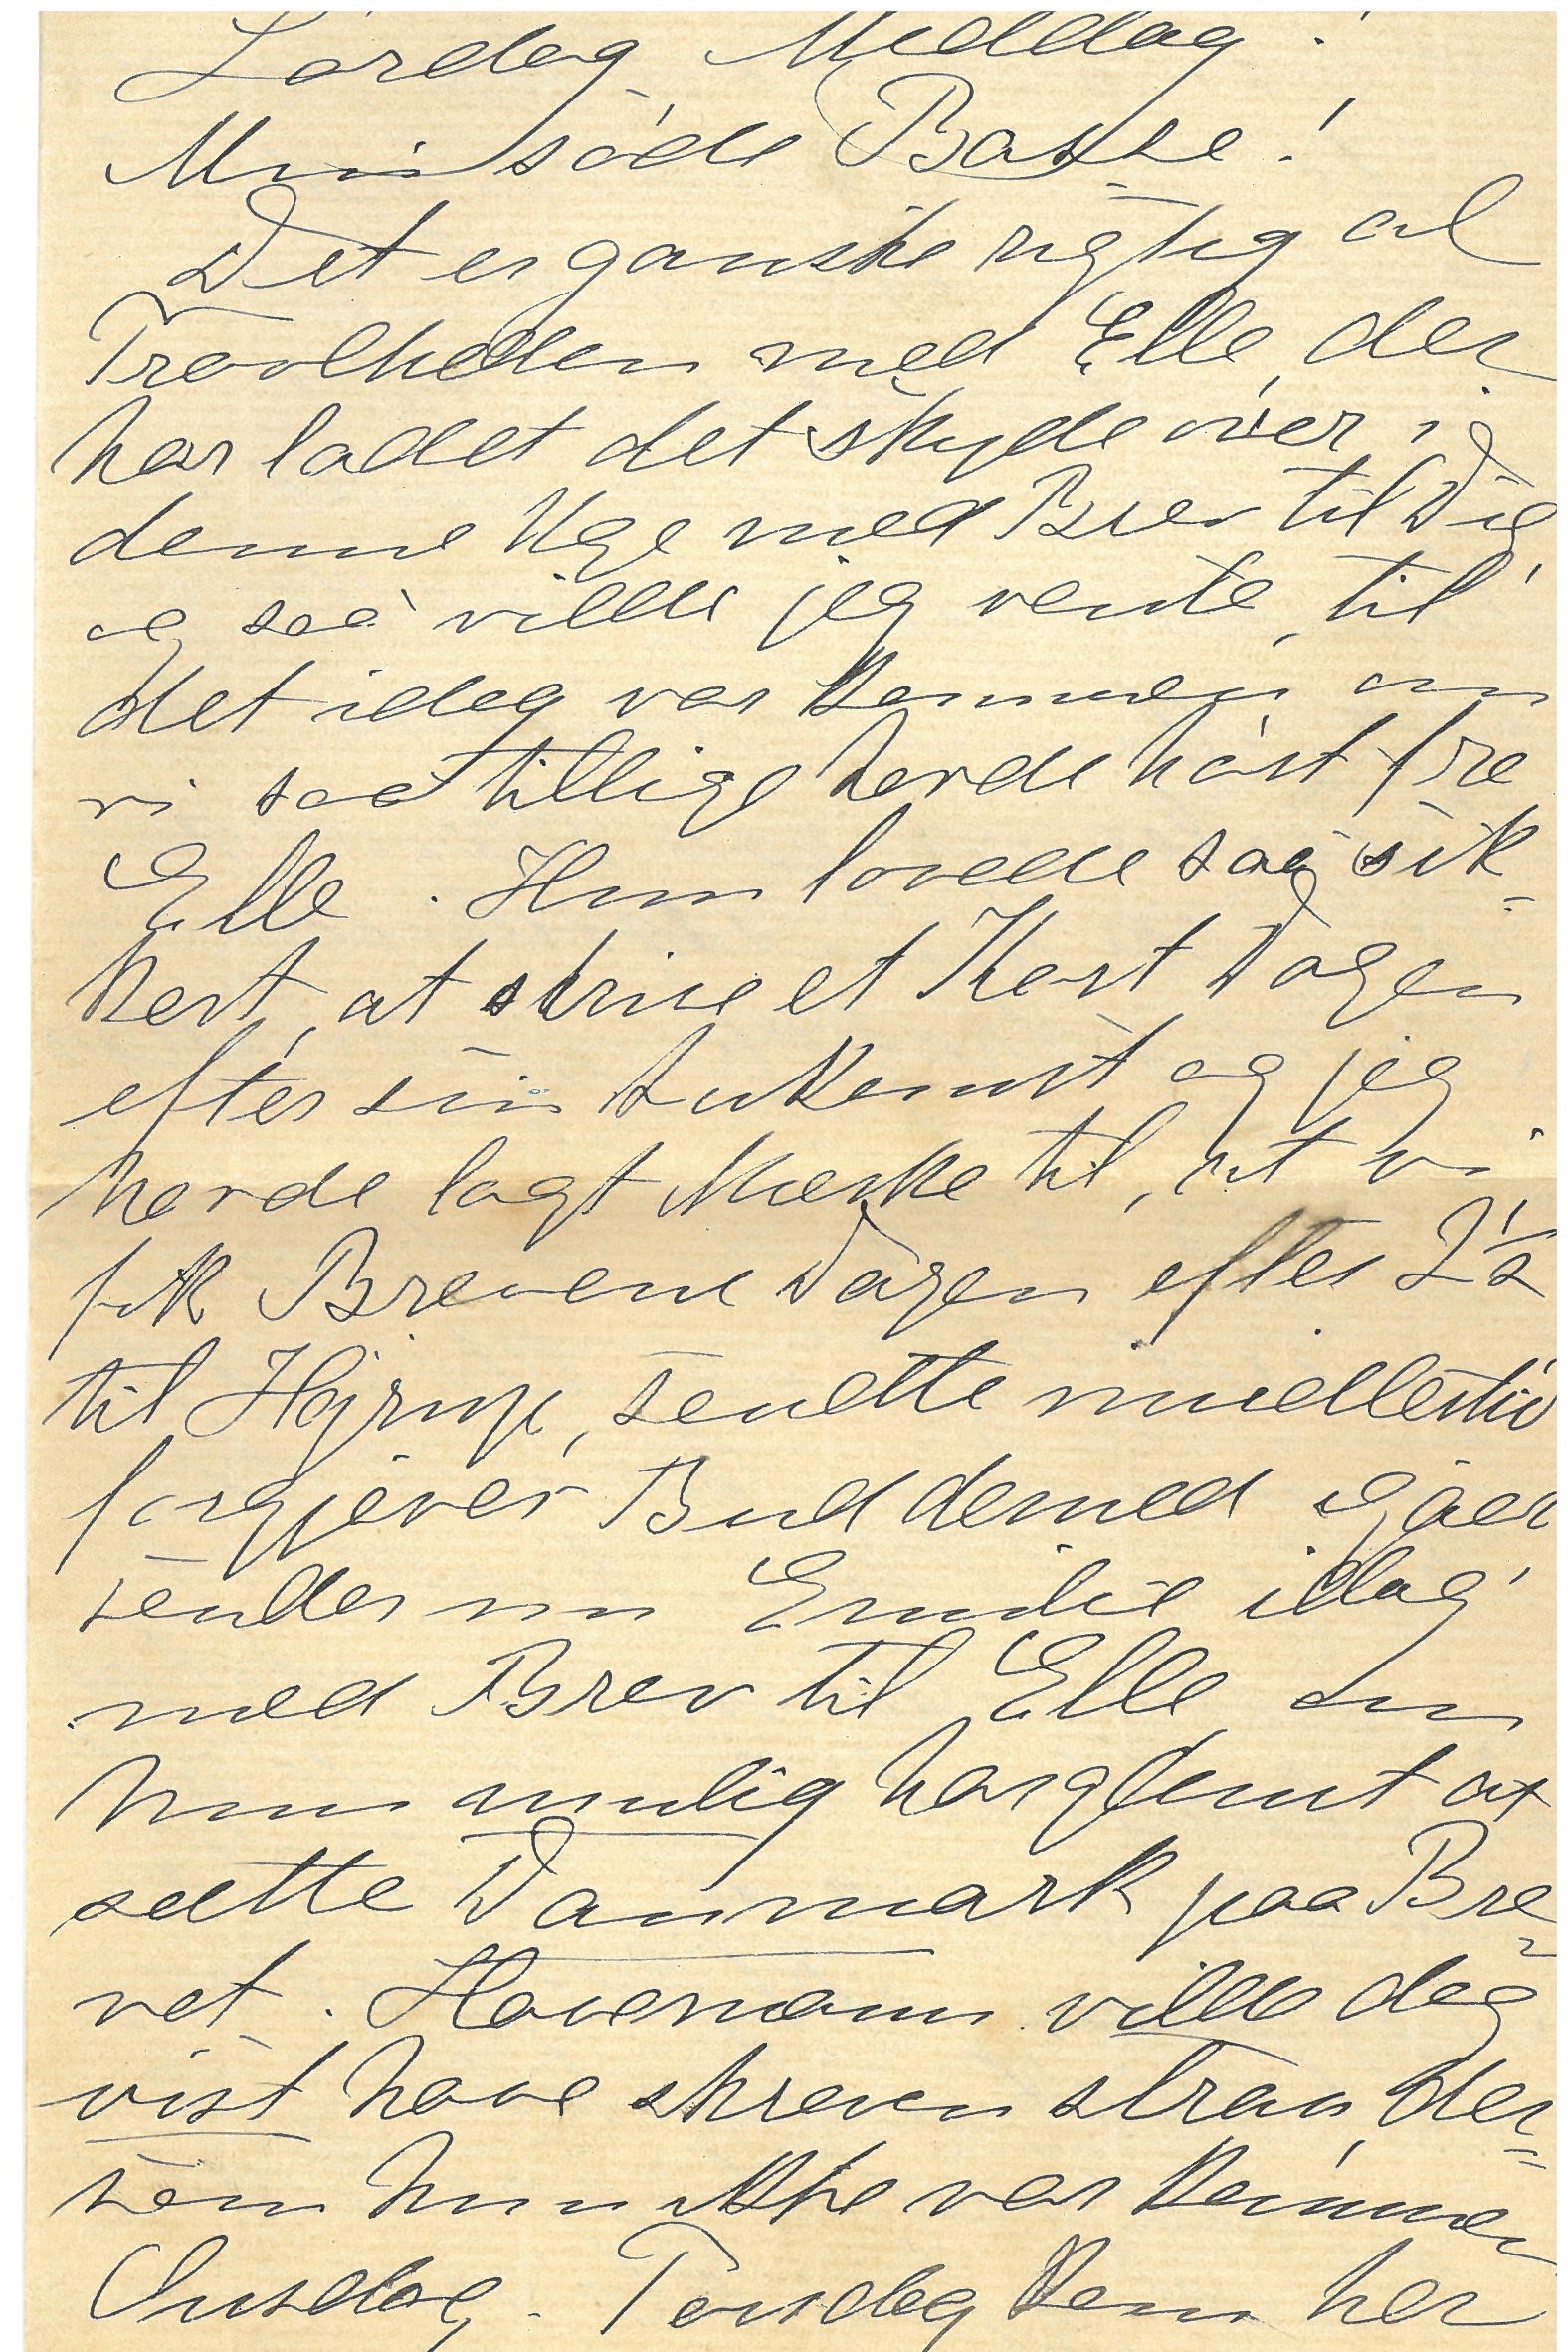 Lørdag Middag!
Min søde Basse!
Det er ganske rigtig al
Travlheden med Elle, der
har ladet det skyde over i
denne Uge med Brev til Dig
og saa vilde jeg vente, til
det idag var kommen, om
vi saa tillige havde hørt fra
Elle. Hun lovede saa sik=
kert, at skrive et Kort Dagen
efter sin Ankomst og jeg
havde lagt Mærke til, at vi
fik Brevene Dagen efter 2½
til Højrup, sendte imidlertid
forgjæves Bud derned igaar
sender nu Emilie idag
med Brev til Elle om
hun mulig har glemt at
sætte Danmark paa Bre=
vet. Havemann vilde dog
vist have skreven strax, der=
som hun ikke var kommen
Onsdag. Torsdag kom her